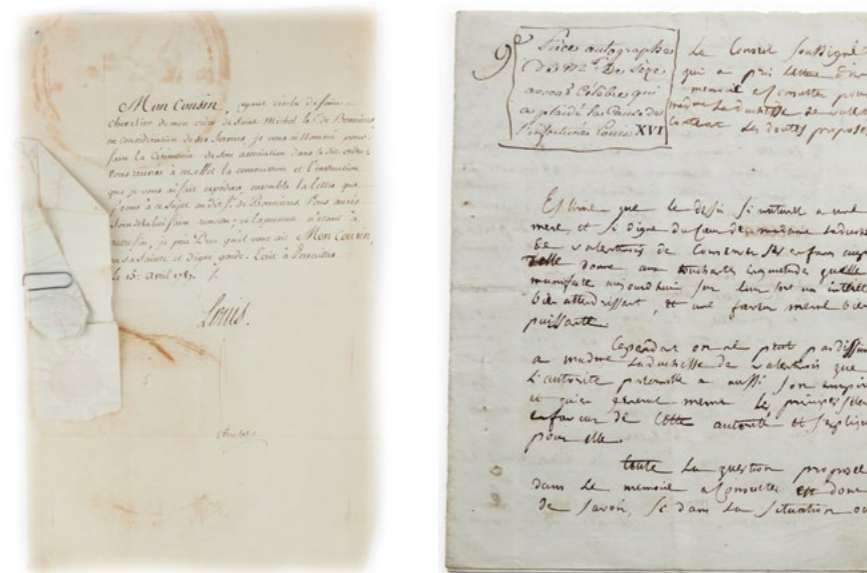 Mon Cousin, ayant résolu de faire
chevalier de mon ordre de Saint Michel le S. de Bonnieres
en consideration de ses Services, je vous ai nommé pour
faire la Cérémonie de son association dans le dit ordre;
vous recevrés à cet effet la commission et l'instruction
que je vous ai fait expedier, ensemble la lettre que
j'ecris à ce Sujet au dit S. de Bonnieres. Vous aurés
Soin de la lui faire remettre; et la presente n'étant à
autre fin, je prie Dieu qu'il vous ait, Mon Cousin,
en sa Sainte et digne garde. Ecrit à Versailles
le 15. Avril 1787. /.
Louis.
9e
Pièce autographe
De Mr. De Sèze
avocat Célèbre qui
a plaidé la Cause de
l'infortuné Louis XVI
Le Conseil soussigné
qui a pris lecture d'un
memoire et consulter pour
madame la duchesse de valentinois
contenant les doutes proposés
Estime que le desir si naturel a une
mere, et si digne du cœur de madame la duchesse
de valentinois de conserver ses enfans aupres
donne aux touchantes inquietude quelle
manifeste aujourdhui sur leur sort un interet
bien attendrissant, et une faveur meme bien
puissante.
Cependant on ne peut pas dissimuler
a madame la duchesse de valentinois que
L'autorité paternelle a aussi son empire
et qu'en general meme les principes
en faveur de cette autorité et s'expliquent
pour elle.
toute la question proposée
dans le memoire a Consulter est donc
de savoir, si dans la situation ou